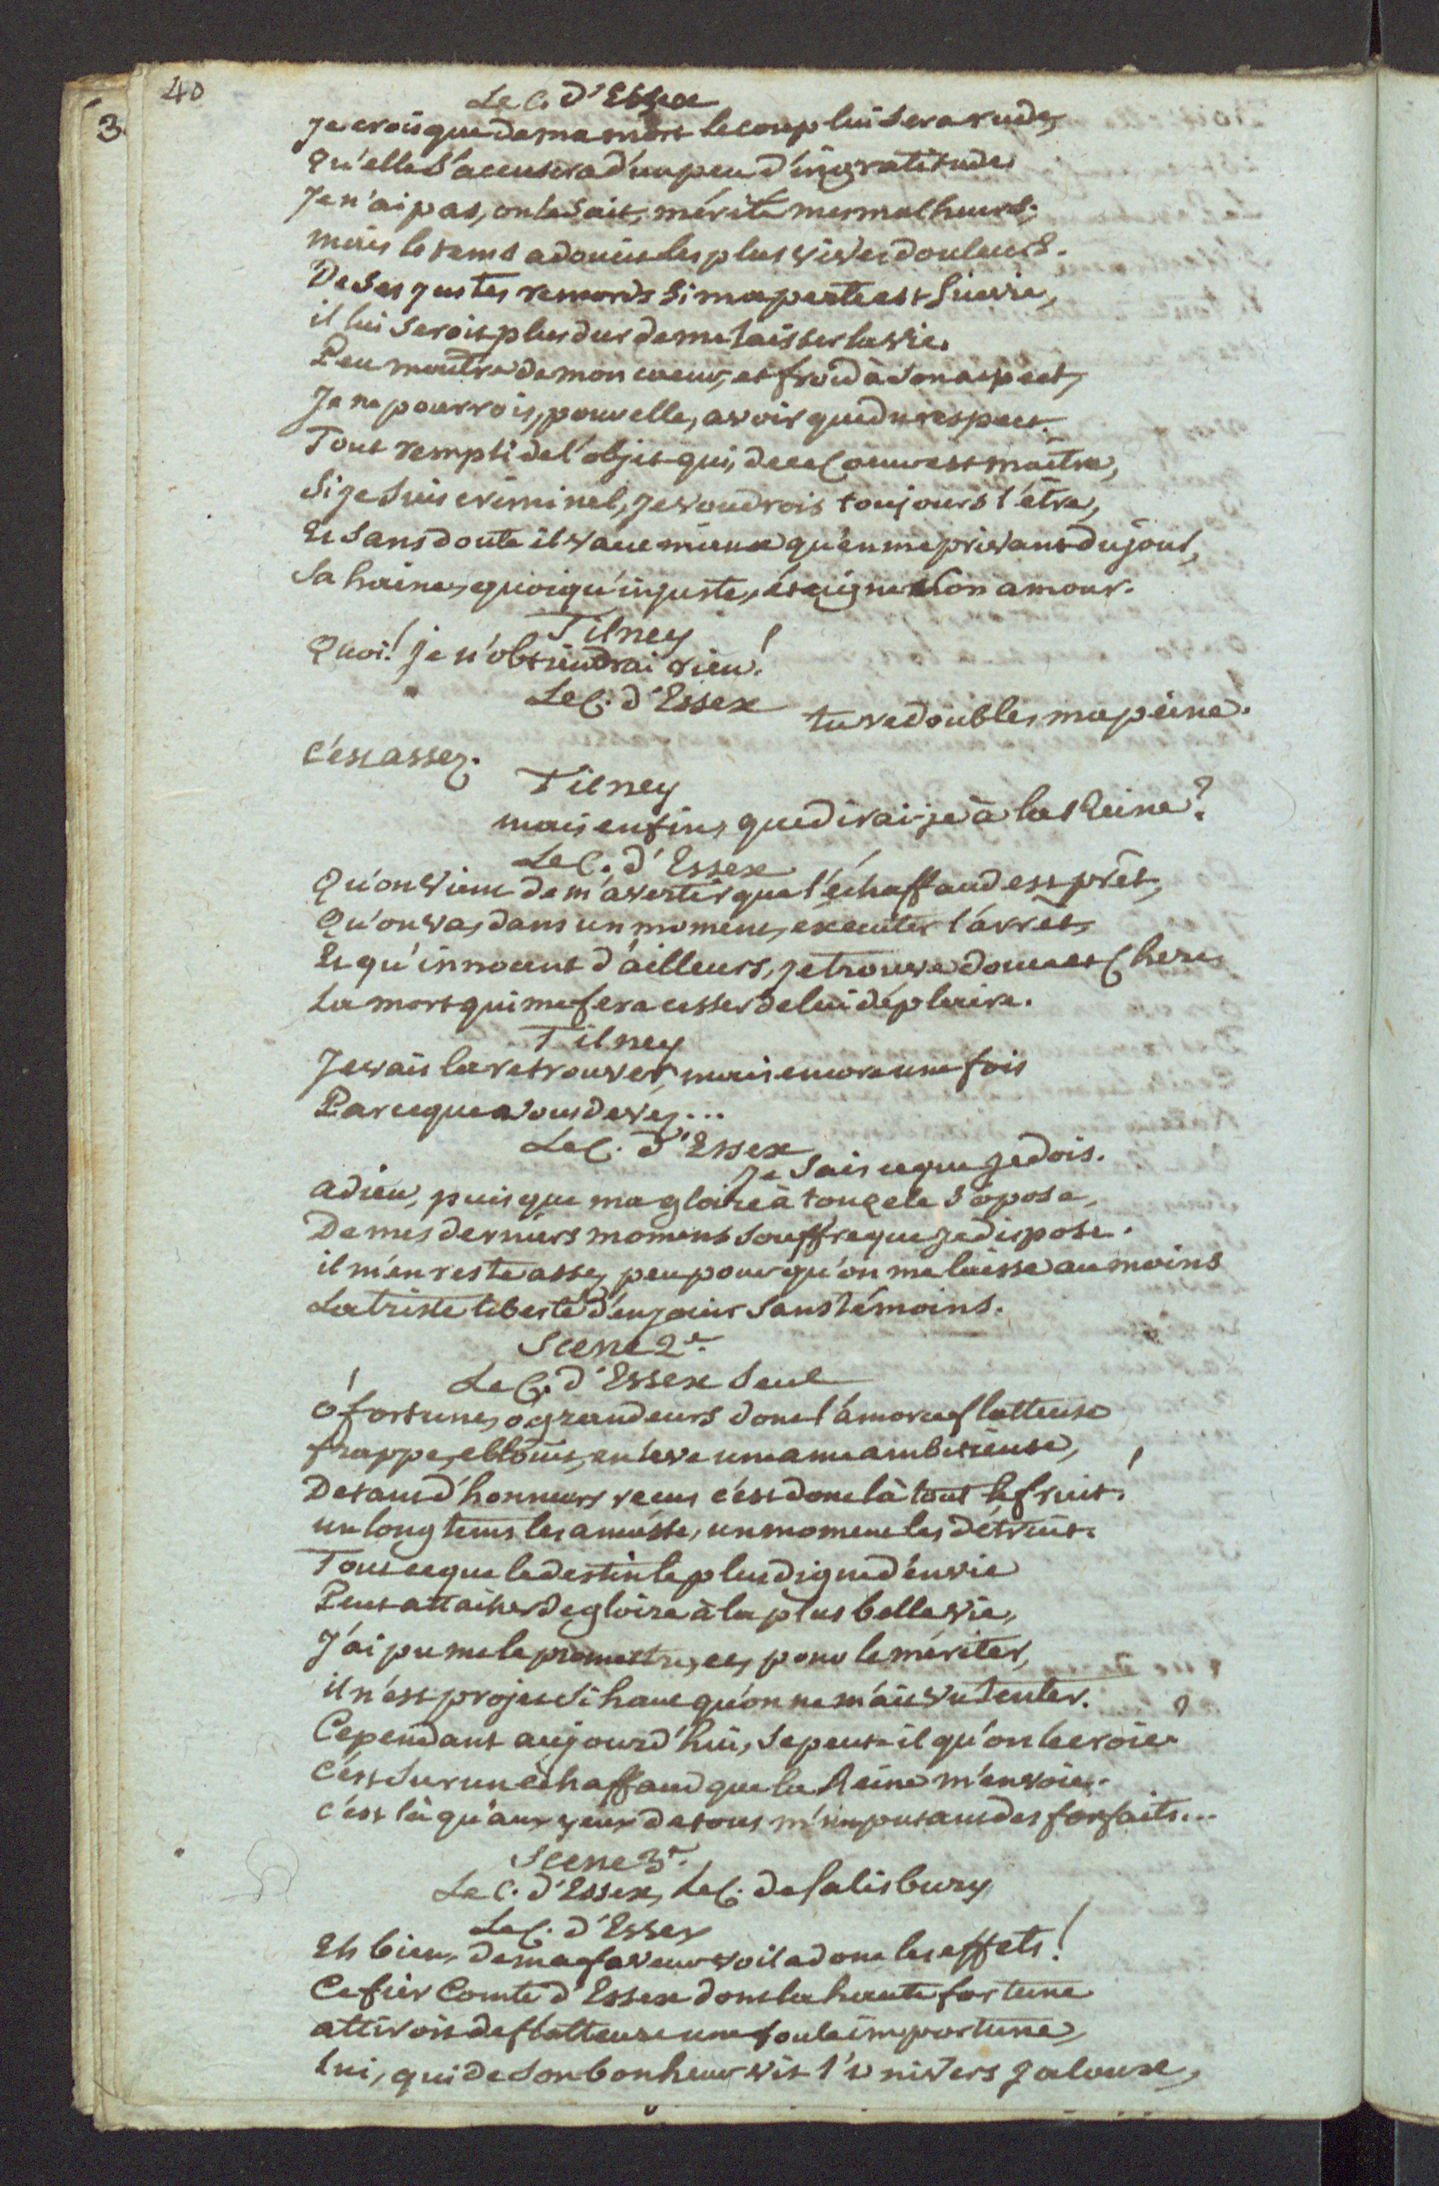 40
3
Le C. d'Essex
Je crois que de ma mort le coup lui sera rude,
Qu'elle s'accusera d'un peu d'ingratitude
Je n'ai pas, on le sait, mérité mes malheurs;
mais le tems adoucit les plus vives douleurs.
De ses justes remords si ma perte est suivie,
il lui seroit plus dur de me laisser la vie.
Peu maitre de mon coeur, et froid à son aspect,
Je ne pourrois, pour elle, avoir que du respect.
Tout rempli de l'objet qui, de ce Coeur est maître,
Si je suis criminel, je voudrois toujours l'être,
Et sans doute il vaut mieux qu'en me privant du jour,
Sa haine, quoiqu'injuste, éteigne son amour.
Tilney
Quoi! je n'obtiendrai rien!
Le C. d'Essex
tu redoubles ma peine.
C'est assez.
Tilney
mais enfin, que dirai-je à la Reine?
Le C. d'Essex
Qu'on vient de m'avertir que l'échaffaud est prêt,
Qu'on va, dans un moment, executer l'arrêt,
Et qu'innocent d'ailleurs, je trouve douce et Chere
La mort qui me fera cesser de lui déplaire.
Tilney
Je vais la retrouver, mais encore une fois
Par ce que vous devéz...
Le C. d'Essex
Je sais ce que je dois.
adieu, puisque ma gloire à ton zele s'opose,
De mes derniers momens souffre que je dispose.
il m'en reste assez peu pour qu'on me laisse au moins
La triste liberté d'en jouir sans témoins.
Scene 2e.
Le C. d'Essex seul
ô fortune, ô grandeurs dont l'amorce flatteuse
frappe, eblouit, enleve une ame ambitieuse,
De tant d'honneurs recus c'est donc là tout le fruit!
un long tems les amasse, un moment les détruit.
Tout ce que le destin le plus digne d'envie
Peut attacher de gloire à la plus belle vie,
J'ai pu me le promettre, et, pour le mériter,
il n'est projet si haut qu'on ne m'ait vu tenter.
Cependant aujourd'hui, se peut-il qu'on le croie?
C'est sur un échaffaud que la Reine m'envoie.
C'est là qu'aux yeux de tous m'imputant des forfaits...
Scene 3e.
Le C. d'Essex, Le C. de Salisbury
Le C. d'Essex
Eh bien, de ma faveur voila donc les effets!
Ce fier Comte d'Essex dont la haute fortune
attiroit de flatteurs une foule importune,
Lui, qui de son bonheur vit l'univers jaloux,